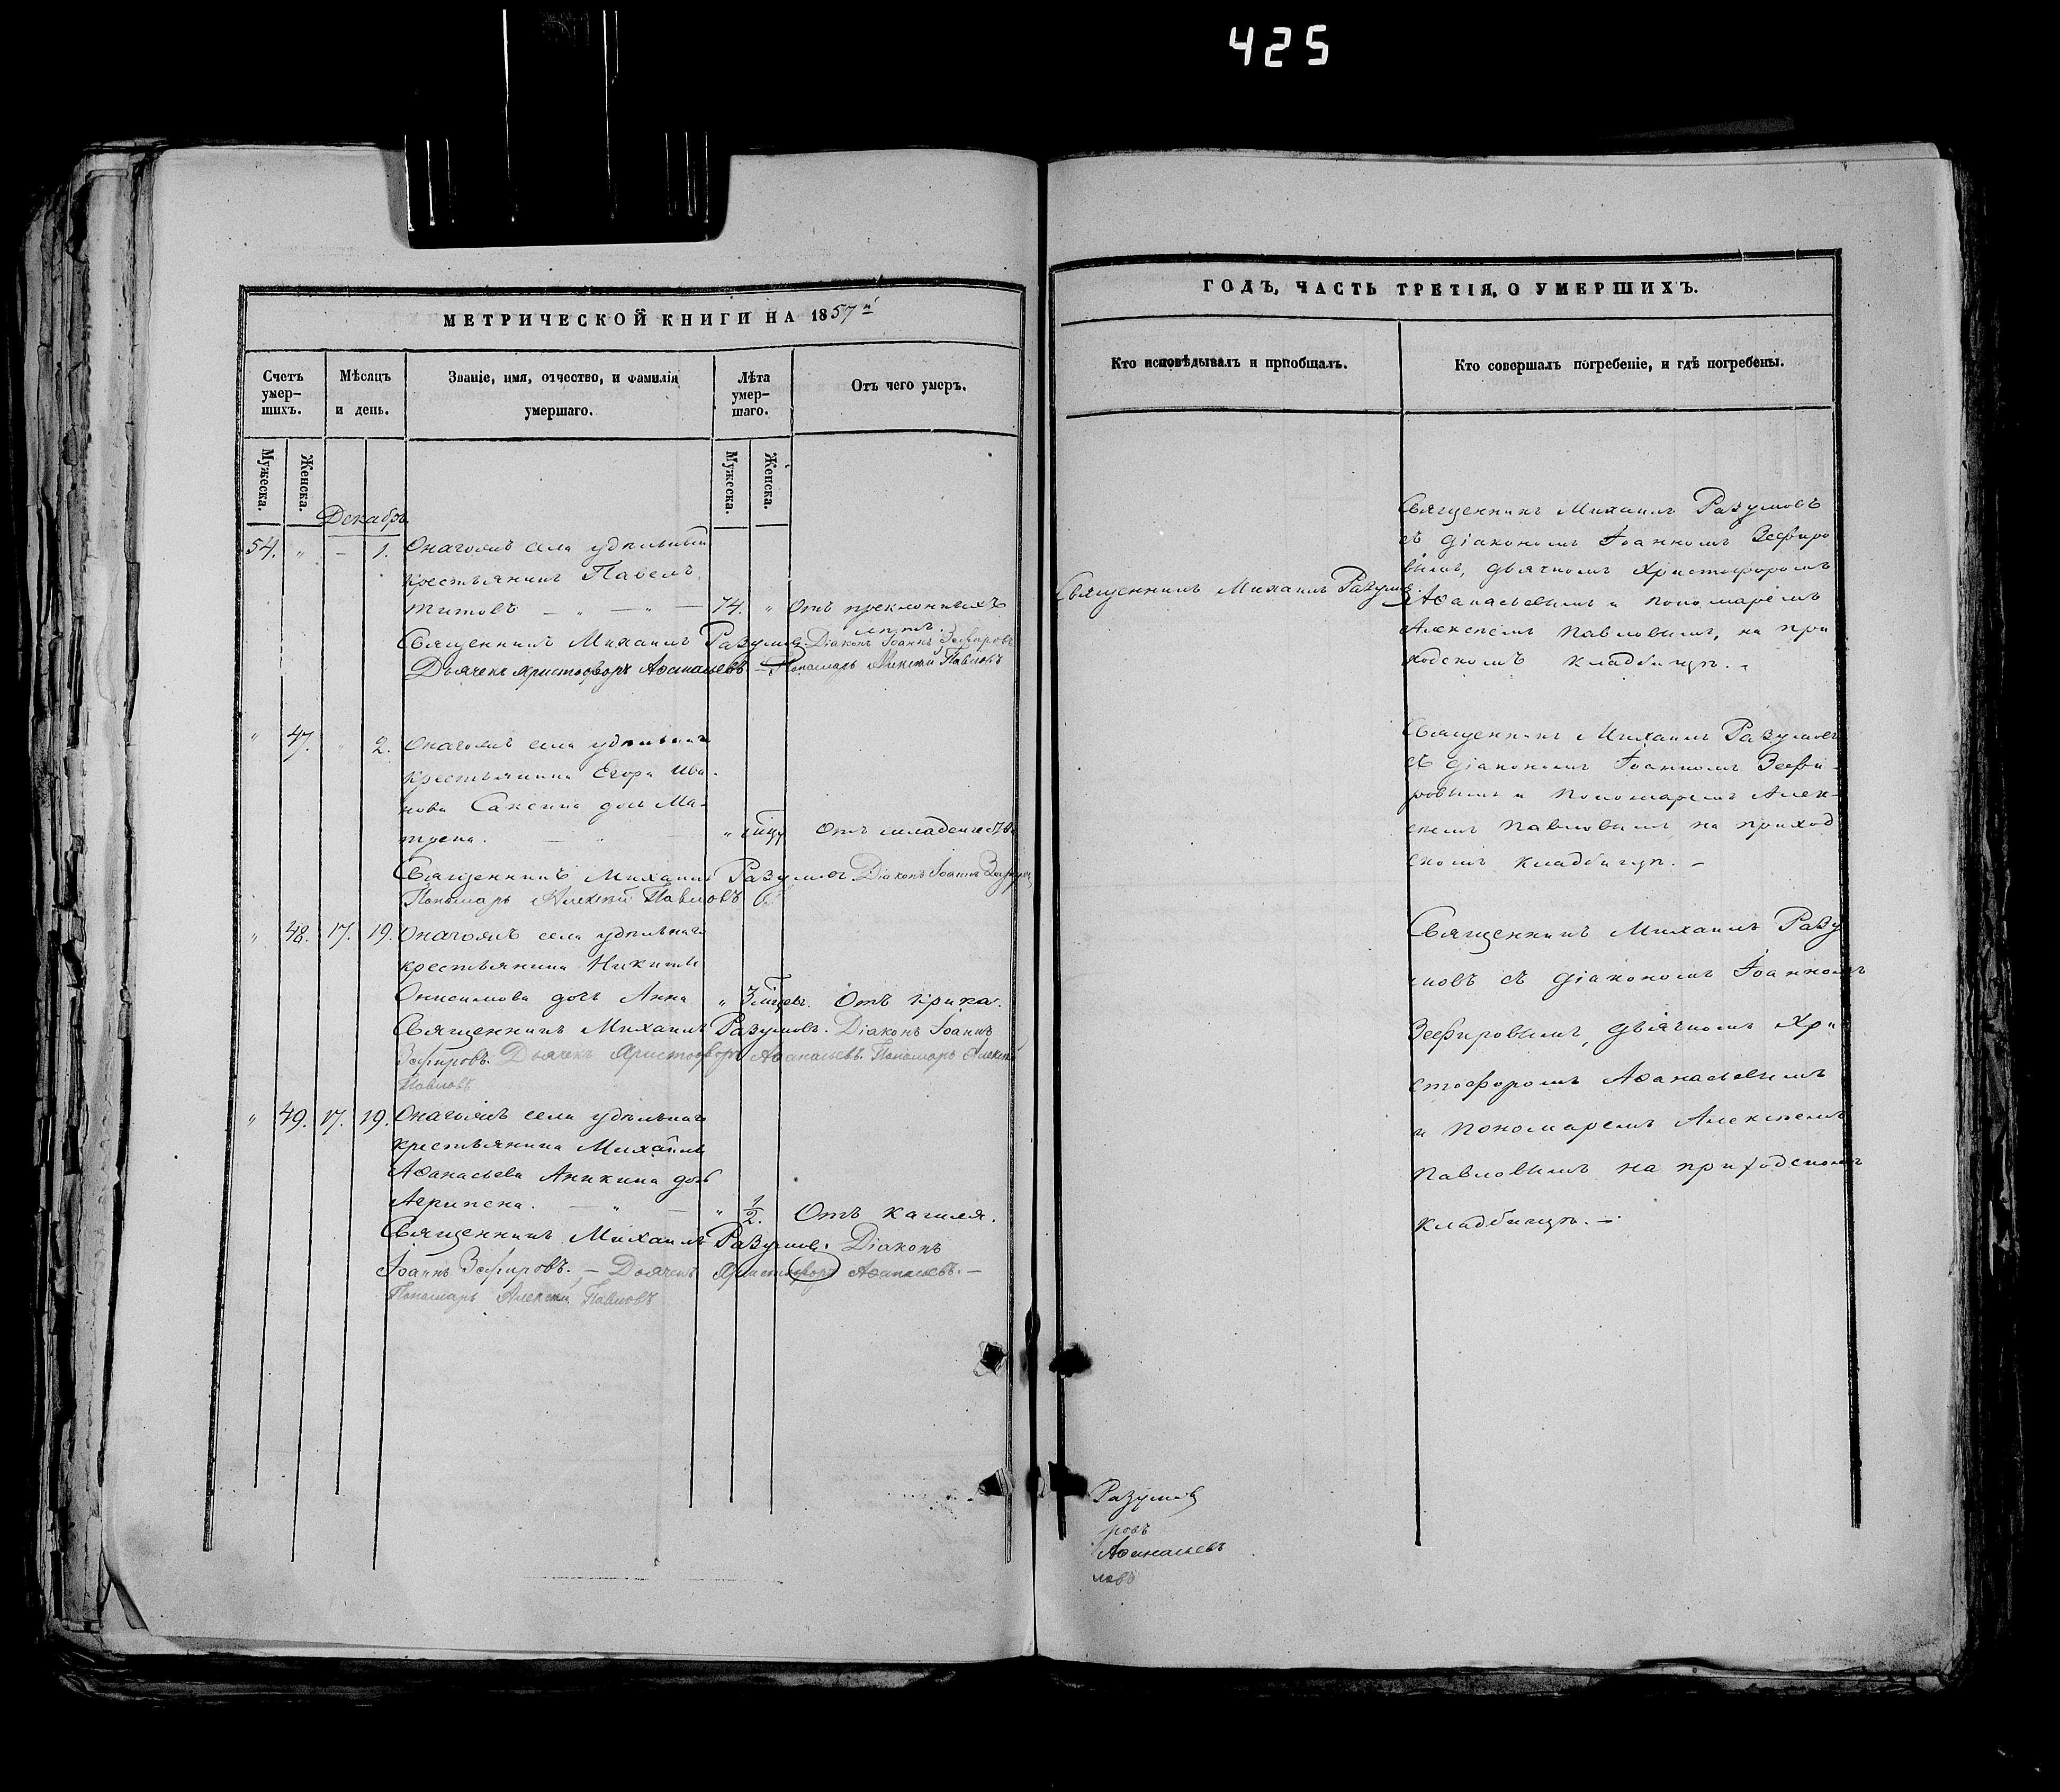 425
МЕТРИЧЕСКОЙ КНИГИ НА 1857й
Счетъ умер-шихъ.
Мѣсяцъ и день.
Званіе, имя, отчество, и фамилія умершаго.
Лѣта умер-шаго.
Отъ чего умеръ.
Мужеска.
Женска.
Мужеска.
Женска.
Декабрь
54. „ – 1. Онагожъ села удѣльный
крестьянинъ Павелъ
Титовъ – „ – „ – 74. „ Отъ преклонныхъ
лѣтъ.
Священникъ Михаилъ Разумовъ. Діаконъ Іоаннъ Зефировъ
Дьячекъ Христофоръ Аѳанасьевъ – Пономарь Алексѣй Павловъ
„ 47. „ 2. Онагожъ села удѣльнаго
крестьянина Егора Ива-
нова Саксина дочь Ма-
трена. „ Отъ младенчества
Священникъ Михаилъ Разумовъ Діаконъ Іоаннъ Зефировъ
Пономарь Алексѣй Павловъ
„ 48. 17. 19. Онагожъ села удѣльнаго
крестьянина Никиты
Онисимова дочь Анна „ 3 мѣсяц. Отъ крика.
Священникъ Михаилъ Разумовъ. Діаконъ Іоаннъ
Зефировъ. Дьячекъ Христофоръ Аѳанасьевъ. Пономарь Алексѣй
Павловъ
„ 49. 17. 19. Онагожъ села удѣльнаго
крестьянина Михаилы
Аѳанасьева Аникина дочь
Агрипена. – „ – „ 1/2. Отъ кашля.
Священникъ Михаилъ Разумовъ. Діаконъ
Іоаннъ Зефировъ. – Дьячекъ Христофоръ Аѳанасьевъ. –
Пономарь Алексѣй Павловъ
ГОДЪ, ЧАСТЬ ТРЕТІЯ, О УМЕРШИХЪ.
Кто исповѣдывалъ и пріобщалъ.
Кто совершалъ погребеніе, и гдѣ погребены.
Священникъ Михаилъ Разумовъ
Священникъ Михаилъ Разумовъ
съ діакономъ Іоанномъ Зефиро
вымъ, дьячкомъ Христофоромъ
Аѳанасьевымъ и пономаремъ
Алексѣемъ Павловымъ, на при
ходскомъ кладбищѣ. –
Священникъ Михаилъ Разумовъ
съ діакономъ Іоанномъ Зефи-
ровымъ и пономаремъ Алек-
сѣемъ Павловымъ на приход
скомъ кладбищѣ. –
Священникъ Михаилъ Разу
мовъ съ діакономъ Іоанномъ
Зефировымъ, дьячкомъ Хри
стофоромъ Аѳанасьевымъ
и пономаремъ Алексѣемъ
Павловымъ на приходскомъ
кладбищѣ. –
Разумовъ
ровъ
Аѳанасьевъ
ловъ